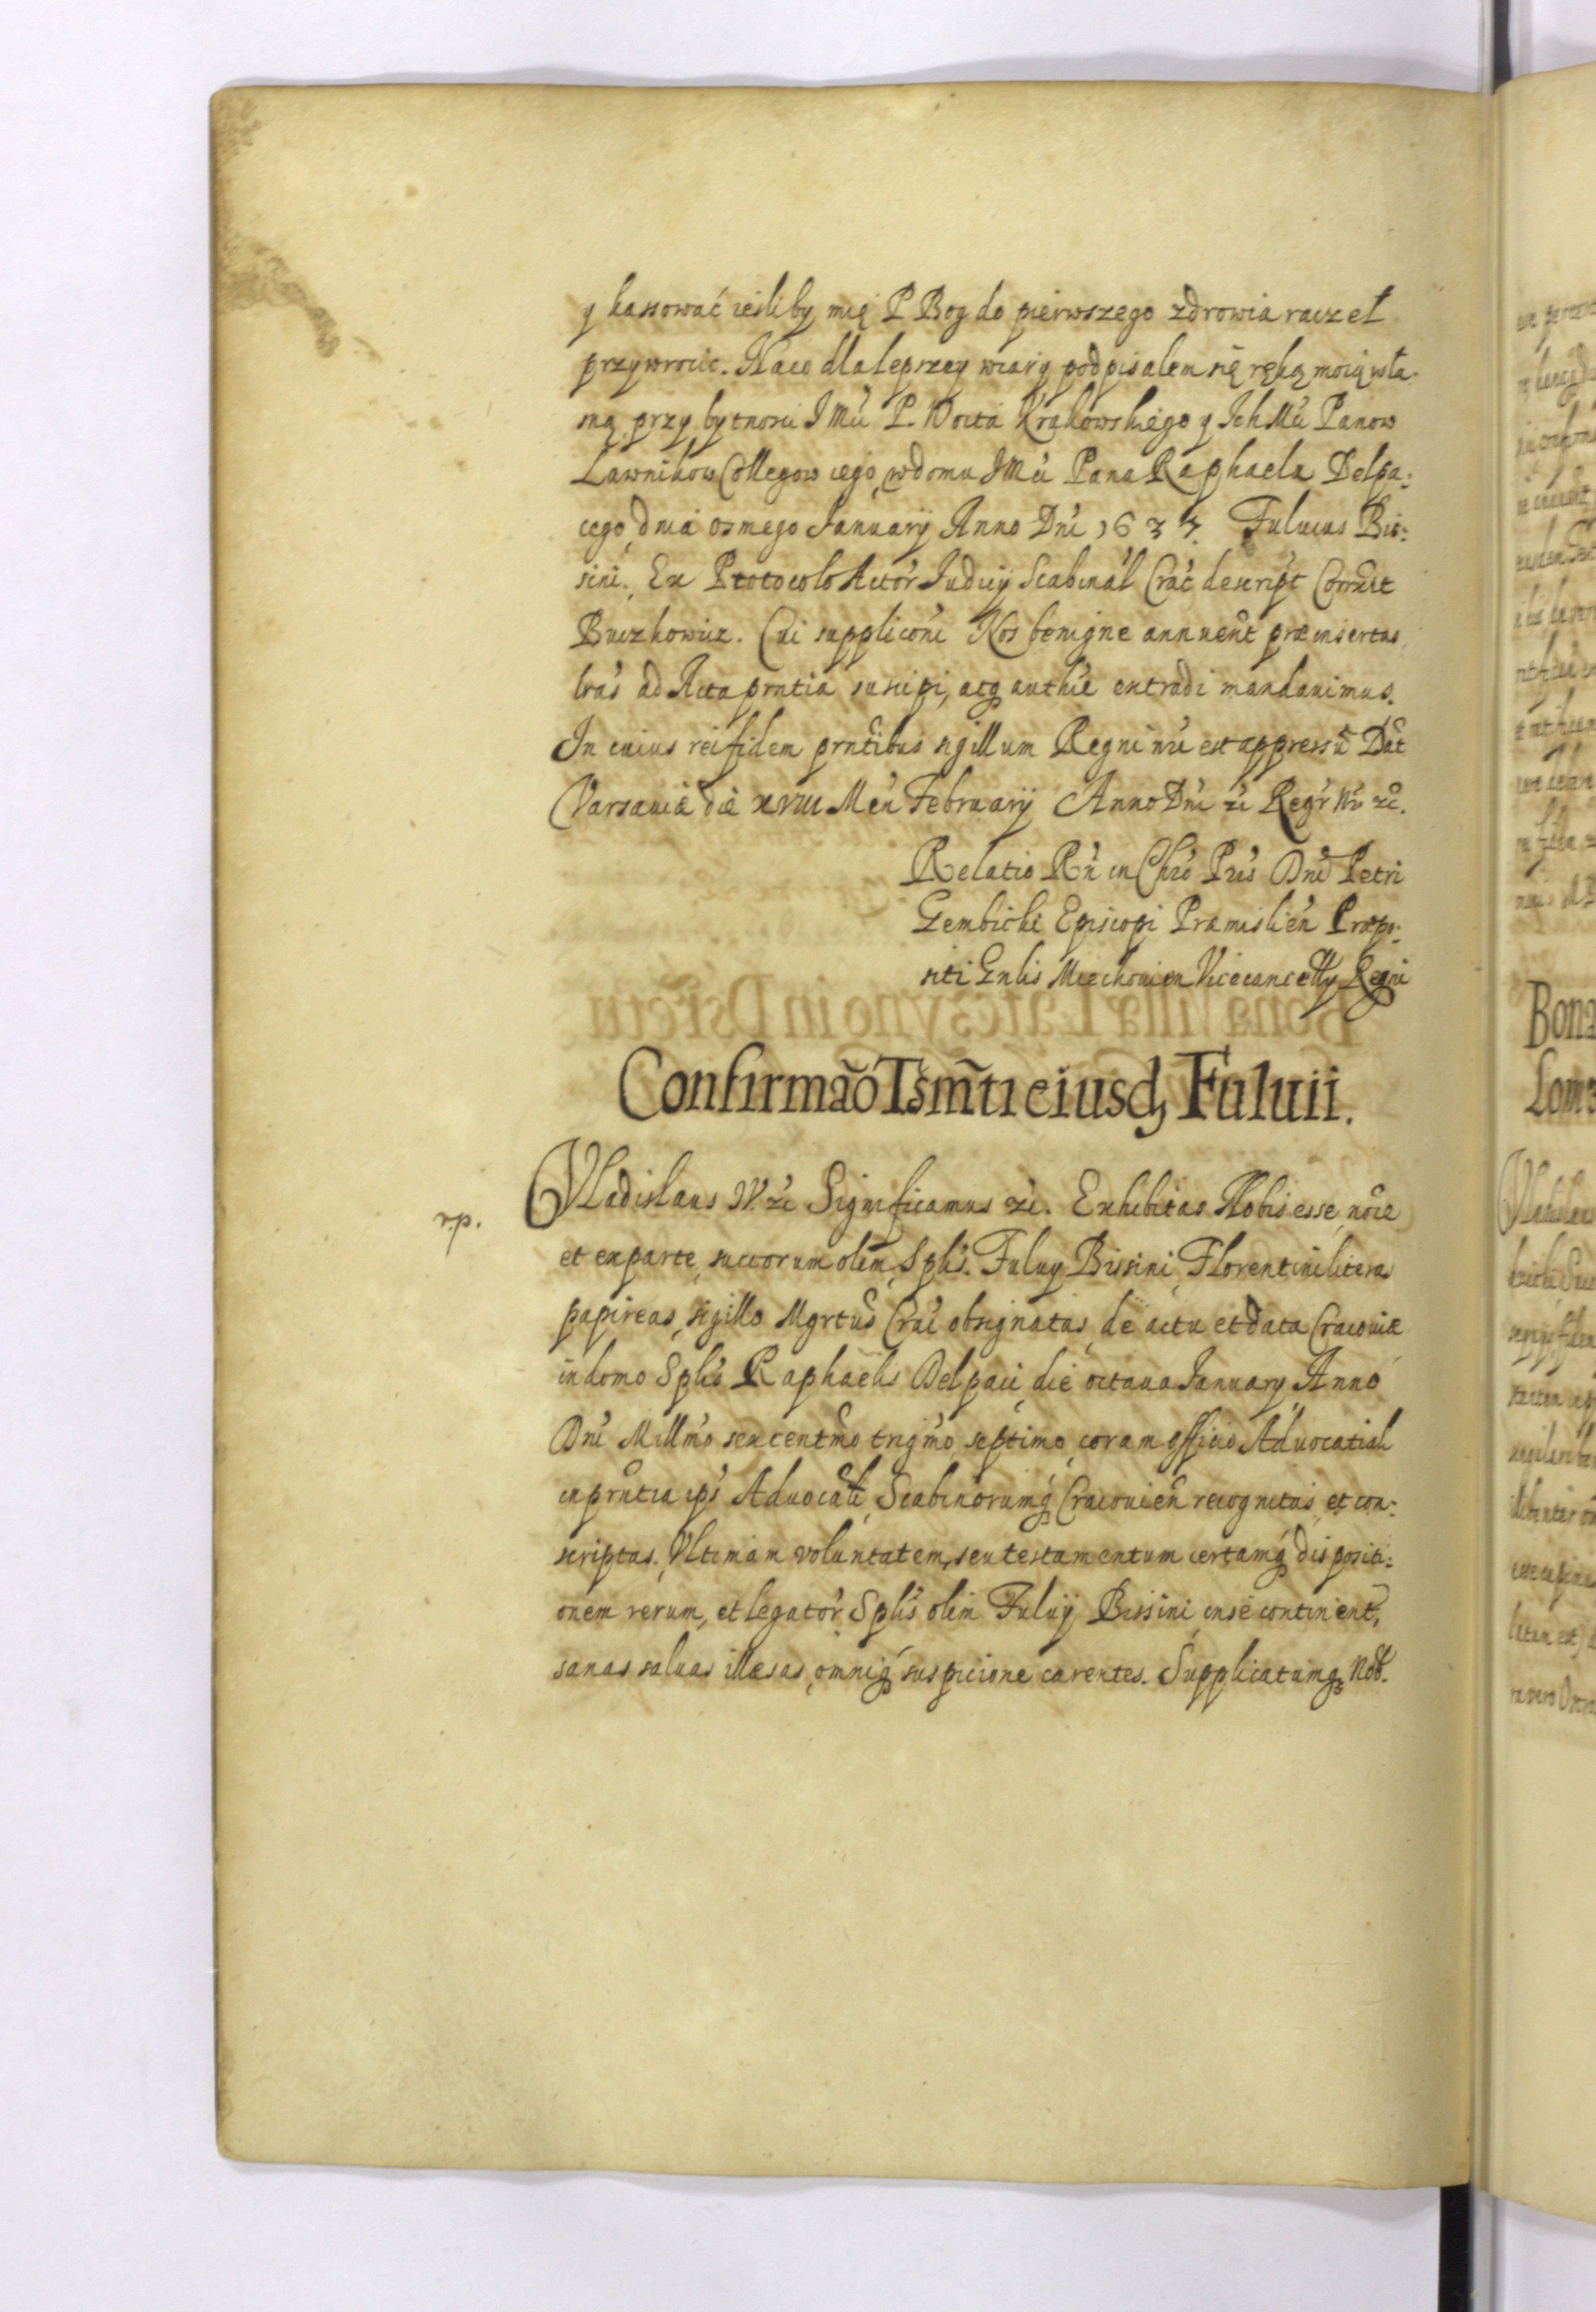 y kassować ieśliby mię P Bog do pierwszego zdrowia raczeł
przywrocic. Naco dla lepszey wiary podpisalem się ręką moią wła-
sną przy bytnosci J Mci P. Woita Krakowskiego y Ich Mci Panow
Lawnikow Collegow iego, w domu J Mci Pana Raphaela Delpa:
cego, dnia osmego Januarij Anno Dni 1637. Fuluius Bis:
sini. Ex Ptotocolo Actor Judicij Scabinal Crac descript Correxit
Buczkowicz. Cui suppliconi Nos benigne annuent præinsertas
lras ad Acta prntia suscipi, atq authce extradi mandauimus.
In cuius rei fidem prntibus sigillum Regni nri est appressu Dat
Varsauiæ die XVIII Men February Anno Dni zc Regr Nr zc.
Relatio Rn in Chro Pris Dni Petri
Gembicki Episcopi Præmislien Præpo:
siti Gnlis Miechouien Vicecancelly Regni
Confirmão Tsm̃ti eiusdꝫ Fuluii.
rp.
Vladislaus IV. zc Significamus zc. Exhibitas Nobis esse, noie
et ex parte, succorum olim, Splis. Fuluy Bissini, Florentini literas
papireas, sigillo Mgrtus Crac obsignatas, de actu et data Cracouiæ
in domo Splis Raphaelis Delpaci, die octaua January, Anno
Dni Millmo sexcentmo trigmo, septimo, coram officio Aduocatiali
in prntia ips Aduocati, Scabinorumq Cracouien recognitas, et con:
scriptas. Vltimam voluntatem, seu testamentum certamq dispositi:
onem rerum, et legator Splis olim Fuluij Bissini, in se continent,
sanas saluas illæsas, omniq suspicione carentes. Supplicatumqꝫ Nob.